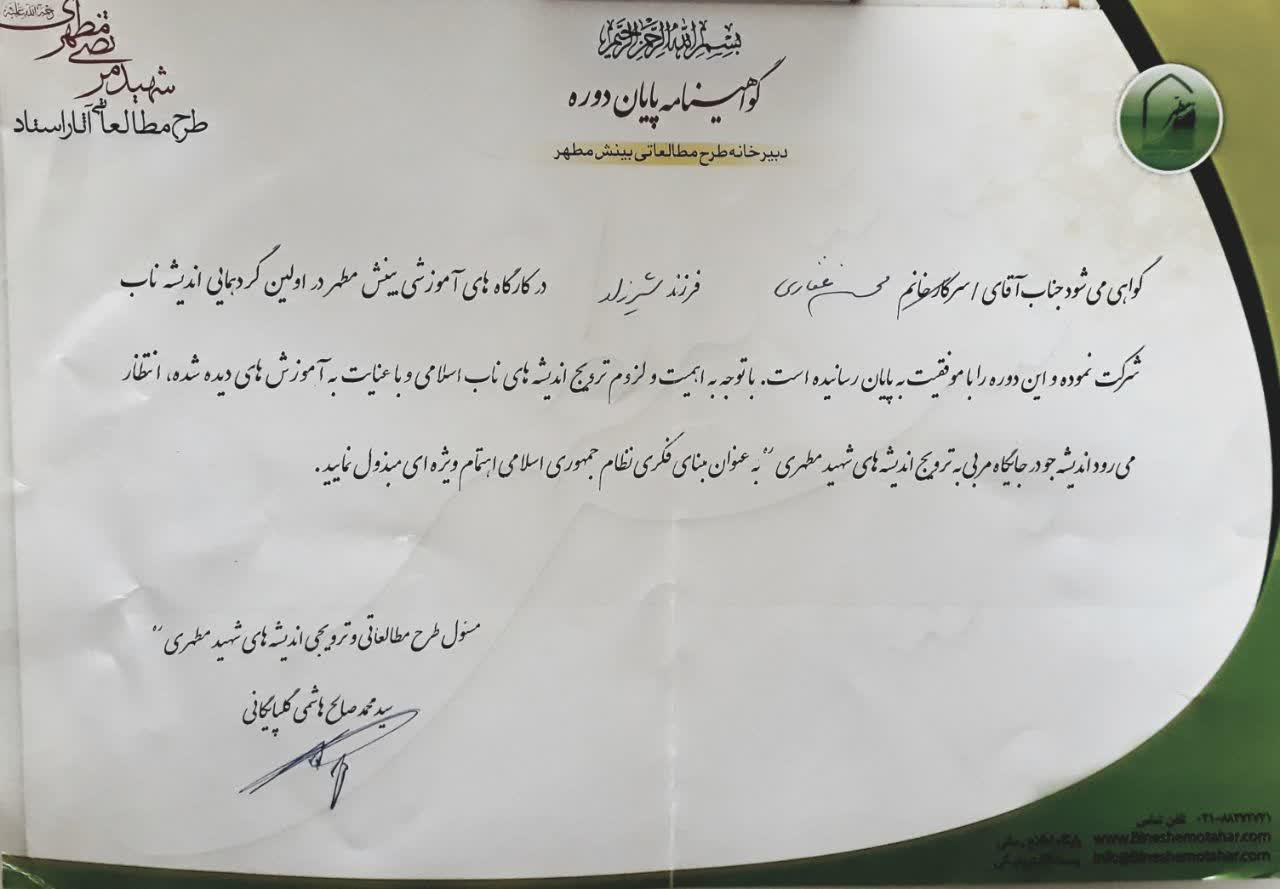 بسم الله الرحمن الرحیم
گواهینامه پایان دوره
دبیرخانه طرح مطالعاتی بینش مطهر
رحمةالله علیه
شهید مرتضی مطهری
طرح مطالعاتی آثار استاد
مطهر
گواهی می شود جناب آقای / سرکار خانم محسن غفاری فرزند شیرزاد در کارگاه های آموزشی بینش مطهر در اولین گردهمایی اندیشه ناب
شرکت نموده و این دوره را با موفقیت به پایان رسانیده است. با توجه به اهمیت و لزوم ترویج اندیشه های ناب اسلامی و با عنایت به آموزش های دیده شده، انتظار
می رود اندیشه جو در جایگاه مربی به ترویج اندیشه های شهید مطهری ره به عنوان مبنای فکری نظام جمهوری اسلامی اهتمام ویژه ای مبذول نمایید.
مسئول طرح مطالعاتی و ترویجی اندیشه های شهید مطهری ره
سید محمد صالح هاشمی گلپایگانی
تلفن تماس
پایگاه اطلاع رسانی www.Bineshemotahar.com
پست الکترونیکی info@Bineshemotahar.com